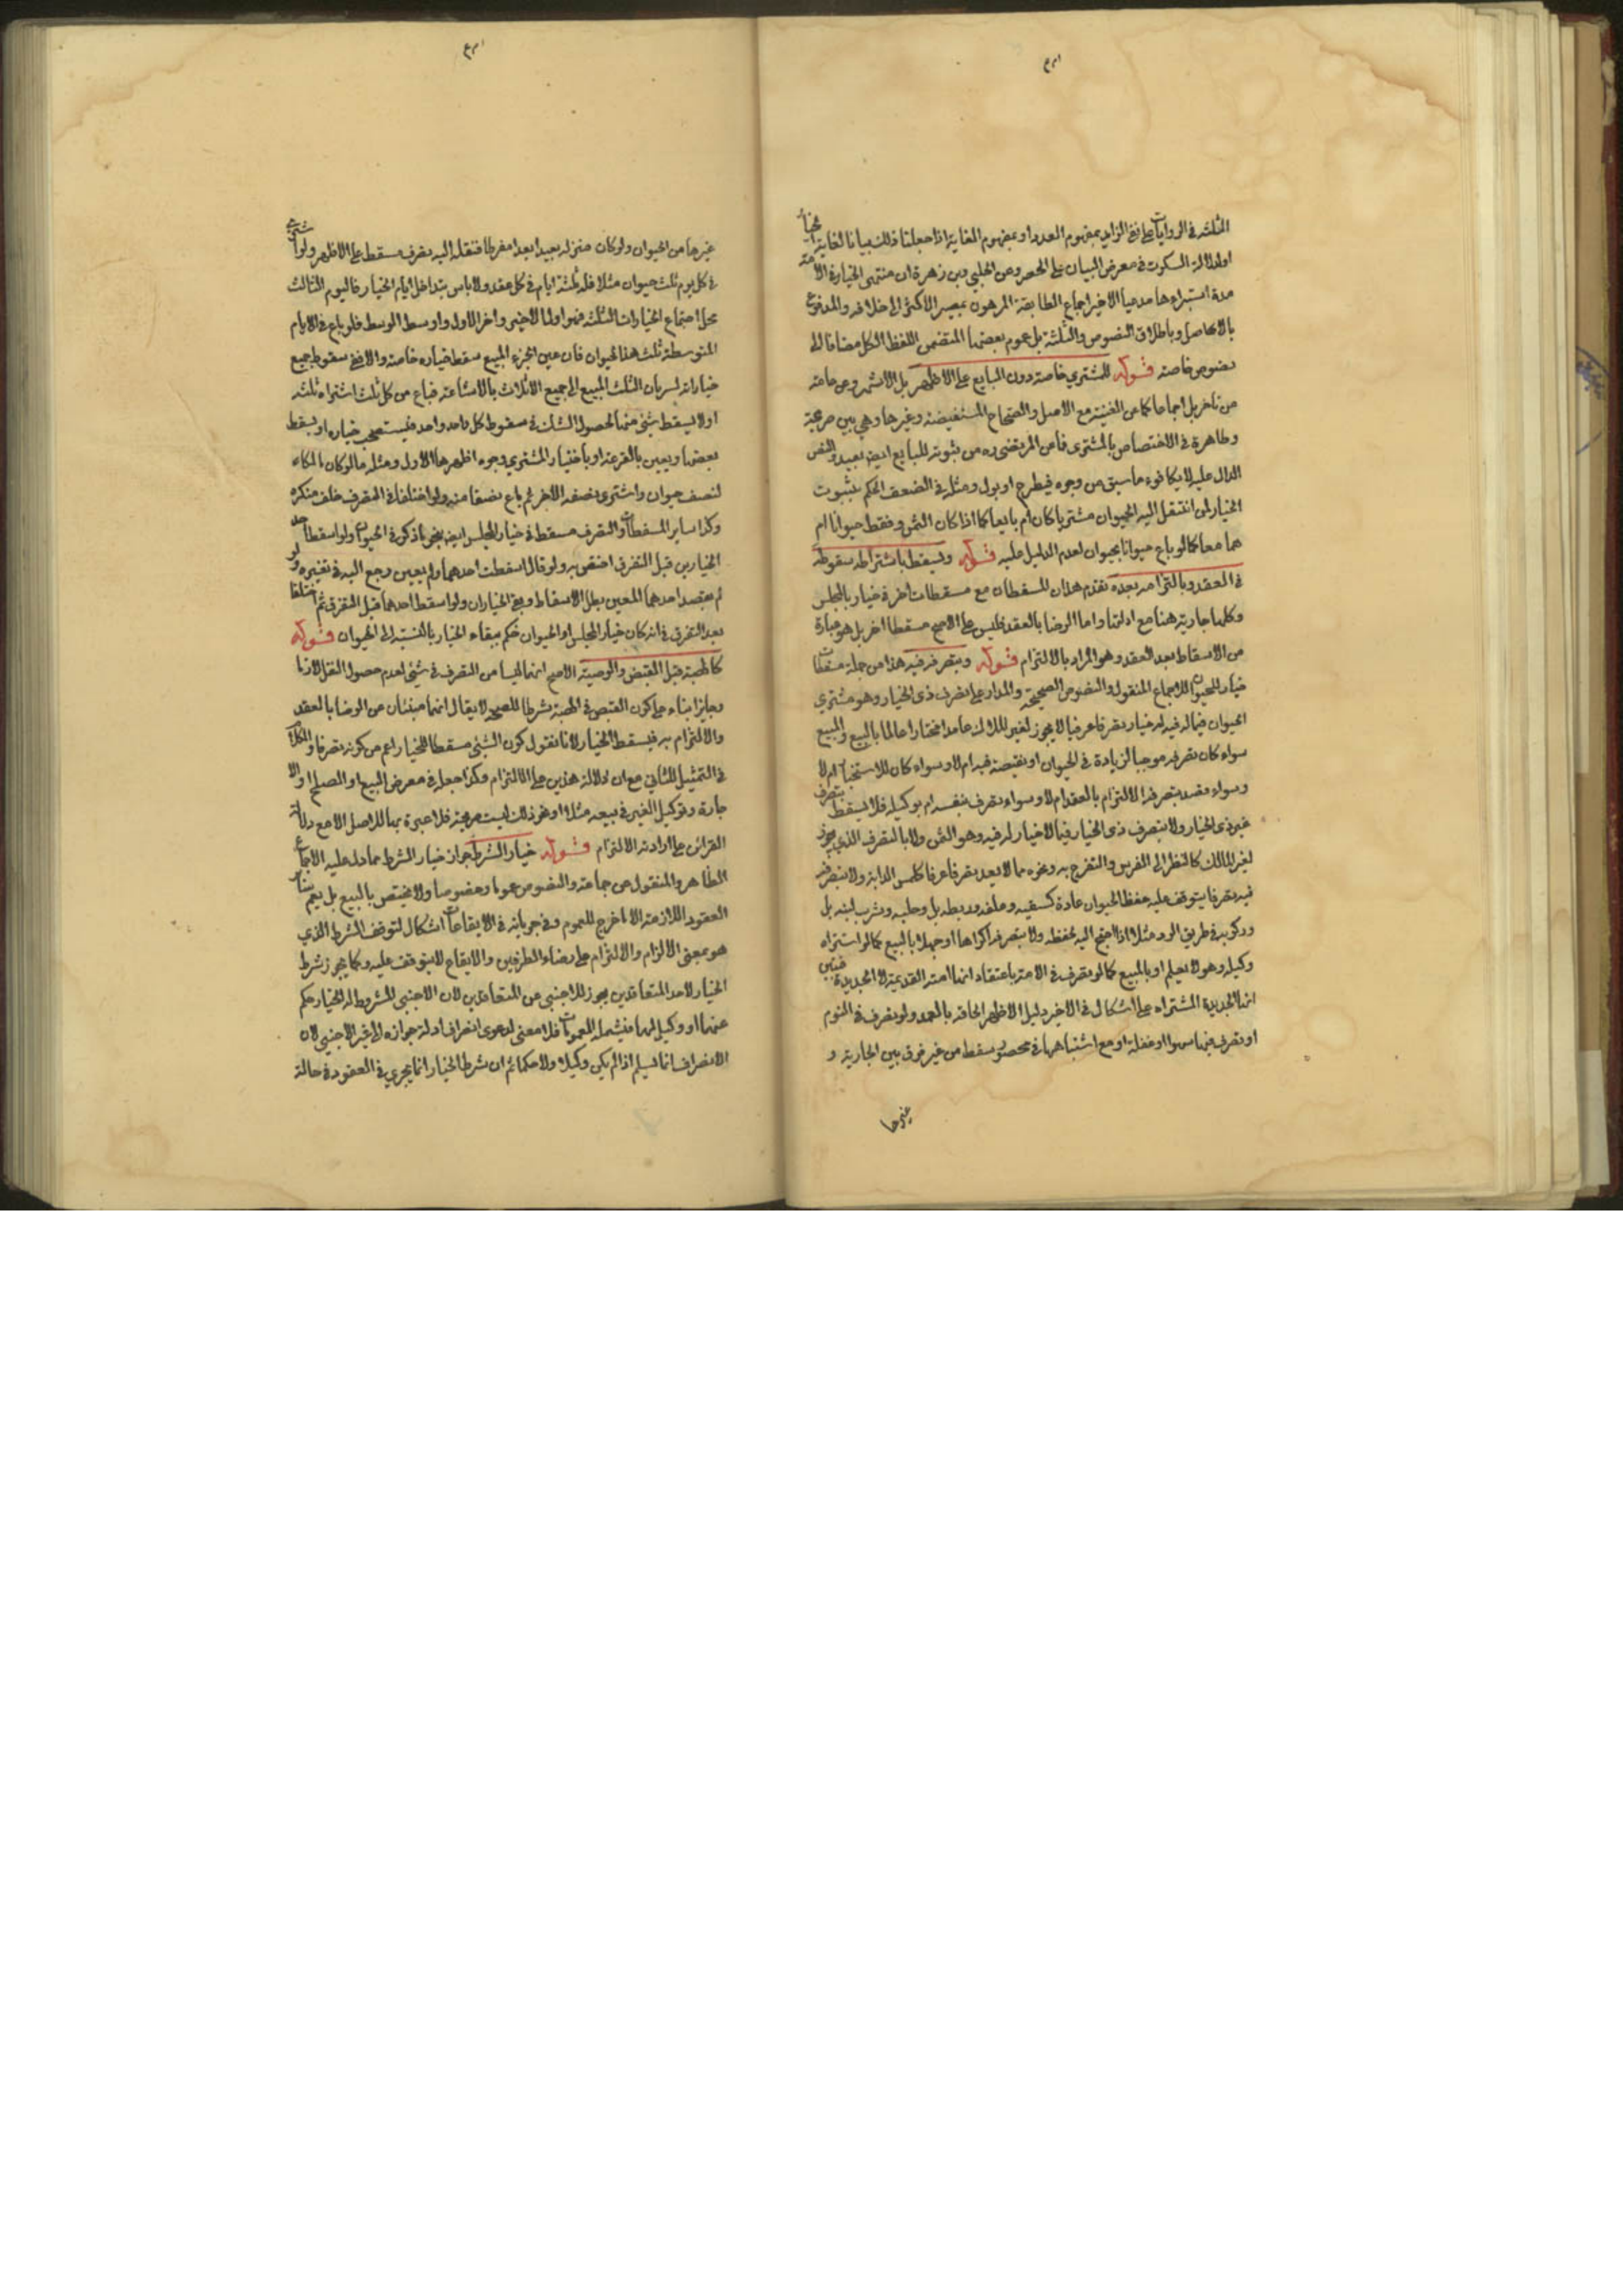 الثلثة في الروايات على نفي الزايد بمفهوم العدد او بمفهوم الغاية اذا جعلنا ذلك بيانا لغاية
او لدلالة السكوت في معرض البيان على الحصر وعن الحلبي وبن زهرة ان منتهى الخيار في الامة
مدة استبراءها مدعيا الاخير اجماع الطايفة المرهون بمصير الاكثر الى خلافه والمدفوع
بالاصل وباطلاق النصوص والثلثة بل عموم بعضها المتضمن اللفظ الكل مضافا الى
نصوص خاصة قوله للمشتري خاصة دون البايع على الاظهر بل الاشهر وعن جماعة
من تاخر بل اجماعا كما عن الغنية مع الاصل والصحاح المستفيضة وغيرها وهي بين صريحة
وظاهرة في الاختصاص بالمشتري فما عن المرتضى ره من ثبوته للبايع ايضا بعيد والنص
الدال عليه لا يكافوء ما سبق من وجوه فيطرح او يول ومثله في الضعف الحكم بثبوت
الخيار لمن انتقل اليه الحيوان مشتريا كان ام بايعا كما اذا كان الثمن فقط حيوانا ام
هما معا كما لو باع حيوانا بحيوان لعدم الدليل عليه قوله ويسقط باشتراط سقوطه
في العقد وبالتزامه بعده تقدم هذان المسقطان مع مسقطات اخر في خيار بالمجلس
وكلها جارية هنا مع ادلتنا واما الرضا بالعقد فليس على الاصح مسقطا اخر بل هو عبارة
من الاسقاط بعد العقد وهو المراد بالالتزام قوله وبتصرفه فيه هذا من جملة مسقطات
خيار الحيوان للاجماع المنقول والنصوص الصحيحة والمدار على تصرف ذي الخيار وهو مشتري
الحيوان فيما له فيه خيار تصرفا عرفيا لا يجوز لغير المالك عامدا مختارا عالما بالبيع والمبيع
سواء كان تصرفه موجبا لزيادة في الحيوان او نقيصة فيه ام لا وسواء كان للاستخبار ام لا
وسواء قصد بتصرفه الالتزام بالعقد ام لا وسواء تصرف بنفسه ام بوكيله فلا يسقط بتصرف
غير ذي الخيار ولا بتصرف ذي الخيار فيما لا خيار له فيه وهو الثمن ولا بالتصرف الذي يجوز
لغير المالك كالنظر الى الفرس والتفرج به ونحوه مما لا يعد تصرفا عرفا كلمس الدابة ولا بتصرفه
فيه تصرفا يتوقف عليه حفظ الحيوان عادة كسقيه وعلفه وربطه بل وحلبه وشرب لبنه بل
وركوبه في طريق الرد مثلا اذا احتج اليه لحفظه ولا بتصرفه اكراها او جهلا بالبيع كما لو اشتراه
وكيله وهو لا يعلم او بالمبيع كما لو تصرف في الامة باعتقاد انها امته القديمة لا الجديدة فتبين
انها الجديدة المشتراه على اشكال في الاخير دليلا الاظهر الحاقه بالعمد ولو تصرف في النوم
او تصرف فيها سهوا او غفلة او مع اشتباهها في محصور سقط من غير فرق بين الجارية و
غيرها
غيرها من الحيوان ولو كان منزله بعيدا بعدا مفرطا فنقله اليه تصرف مسقط على الاظهر ولو اشترى
في كل يوم ثلث حيوان مثلا فله ثلثة ايام في كل عقد ولا باس بتداخل ايام الخيار فاليوم الثالث
محل اجتماع الخيارات الثلثة فهو اول الاخير واخر الاول واوسط الوسط فلو باع في الايام
المتوسطة ثلث هذا الحيوان فان عين الجزء المبيع سقط خياره خاصة والا صح سقوط جميع
خياراته لسريان الثلث المبيع الى جميع الاثلاث بالاشاعة فباع من كل ثلث اشتراه ثلثه
او لا يسقط شيء منها لحصول الشك في سقوط كل واحد واحد فيستصحب خياره او يسقط
بعضها ويعين بالقرعة او باختيار المشتري وجوه اظهرها الاول ومثله ما لو كان مالكا
لنصف حيوان واشترى نصفه الاخر ثم باع نصفا منه ولو اختلفا في التصرف حلف منكره
وكذا ساير المسقطات والتصرف مسقط في خيار المجلس ايضا بنحو ما ذكر في الحيوان ولو اسقط احد
الخيارين قبل التفرق اختص به ولو قال اسقطت احدهما ولم يعين رجع اليه في تفسيره ولو
لم يقصد احدهما المعين بطل الاسقاط وبقي الخياران ولو اسقط احدهما قبل التفرق ثم اختلفا
بعد التفرق في انه كان خيار المجلس او الحيوان حكم ببقاء الخيار بالنسبة الى الحيوان قوله
كالهبة قبل القبض والوصية الاصح انهما ليسا من التصرف في شيء لعدم حصول النقل لازما
وجايزا بناء على كون القبض في الهبة شرطا للصحة لا يقال انهما مبنيان عن الرضا بالعقد
والالتزام به فيسقط الخيار لانا نقول كون الشيء مسقطا للخيار اعم من كونه تصرفا والكلام
في التمثيل للثاني مع ان دلالة هذين على الالتزام وكذا جعله في معرض البيع او الصلح او الا
جارة وتوكيل الغير في بيعه مثلا او نحو ذلك ليست صريحة فلا عبرة بها للاصل الا مع دلالة
القرائن على ارادته الالتزام قوله خيار الشرط جواز خيار الشرط مما دل عليه الاجماع
الظاهر والمنقول عن جماعة والنصوص عموما وخصوصا ولا يختص بالبيع بل يعم ساير
العقود اللازمة الا ما خرج للعموم وفي جريانه في الايقاعات اشكال لتوقف الشرط الذي
هو بمعنى الالزام والالتزام على رضاء الطرفين والايقاع لا يتوقف عليه وكما يجوز شرط
الخيار لاحد المتعاقدين يجوز للاجنبي عن المتعاقدين لان الاجنبي المشروط له الخيار حكم
عنهما او وكيل لهما فيشمله العمومات فلا معنى لدعوى انصراف ادلة جوازه الى غير الاجنبي لان
الانصراف انما يسلم اذا لم يكن وكيلا ولا حكما ثم ان شرط الخيار انما يجري في العقود في حالة